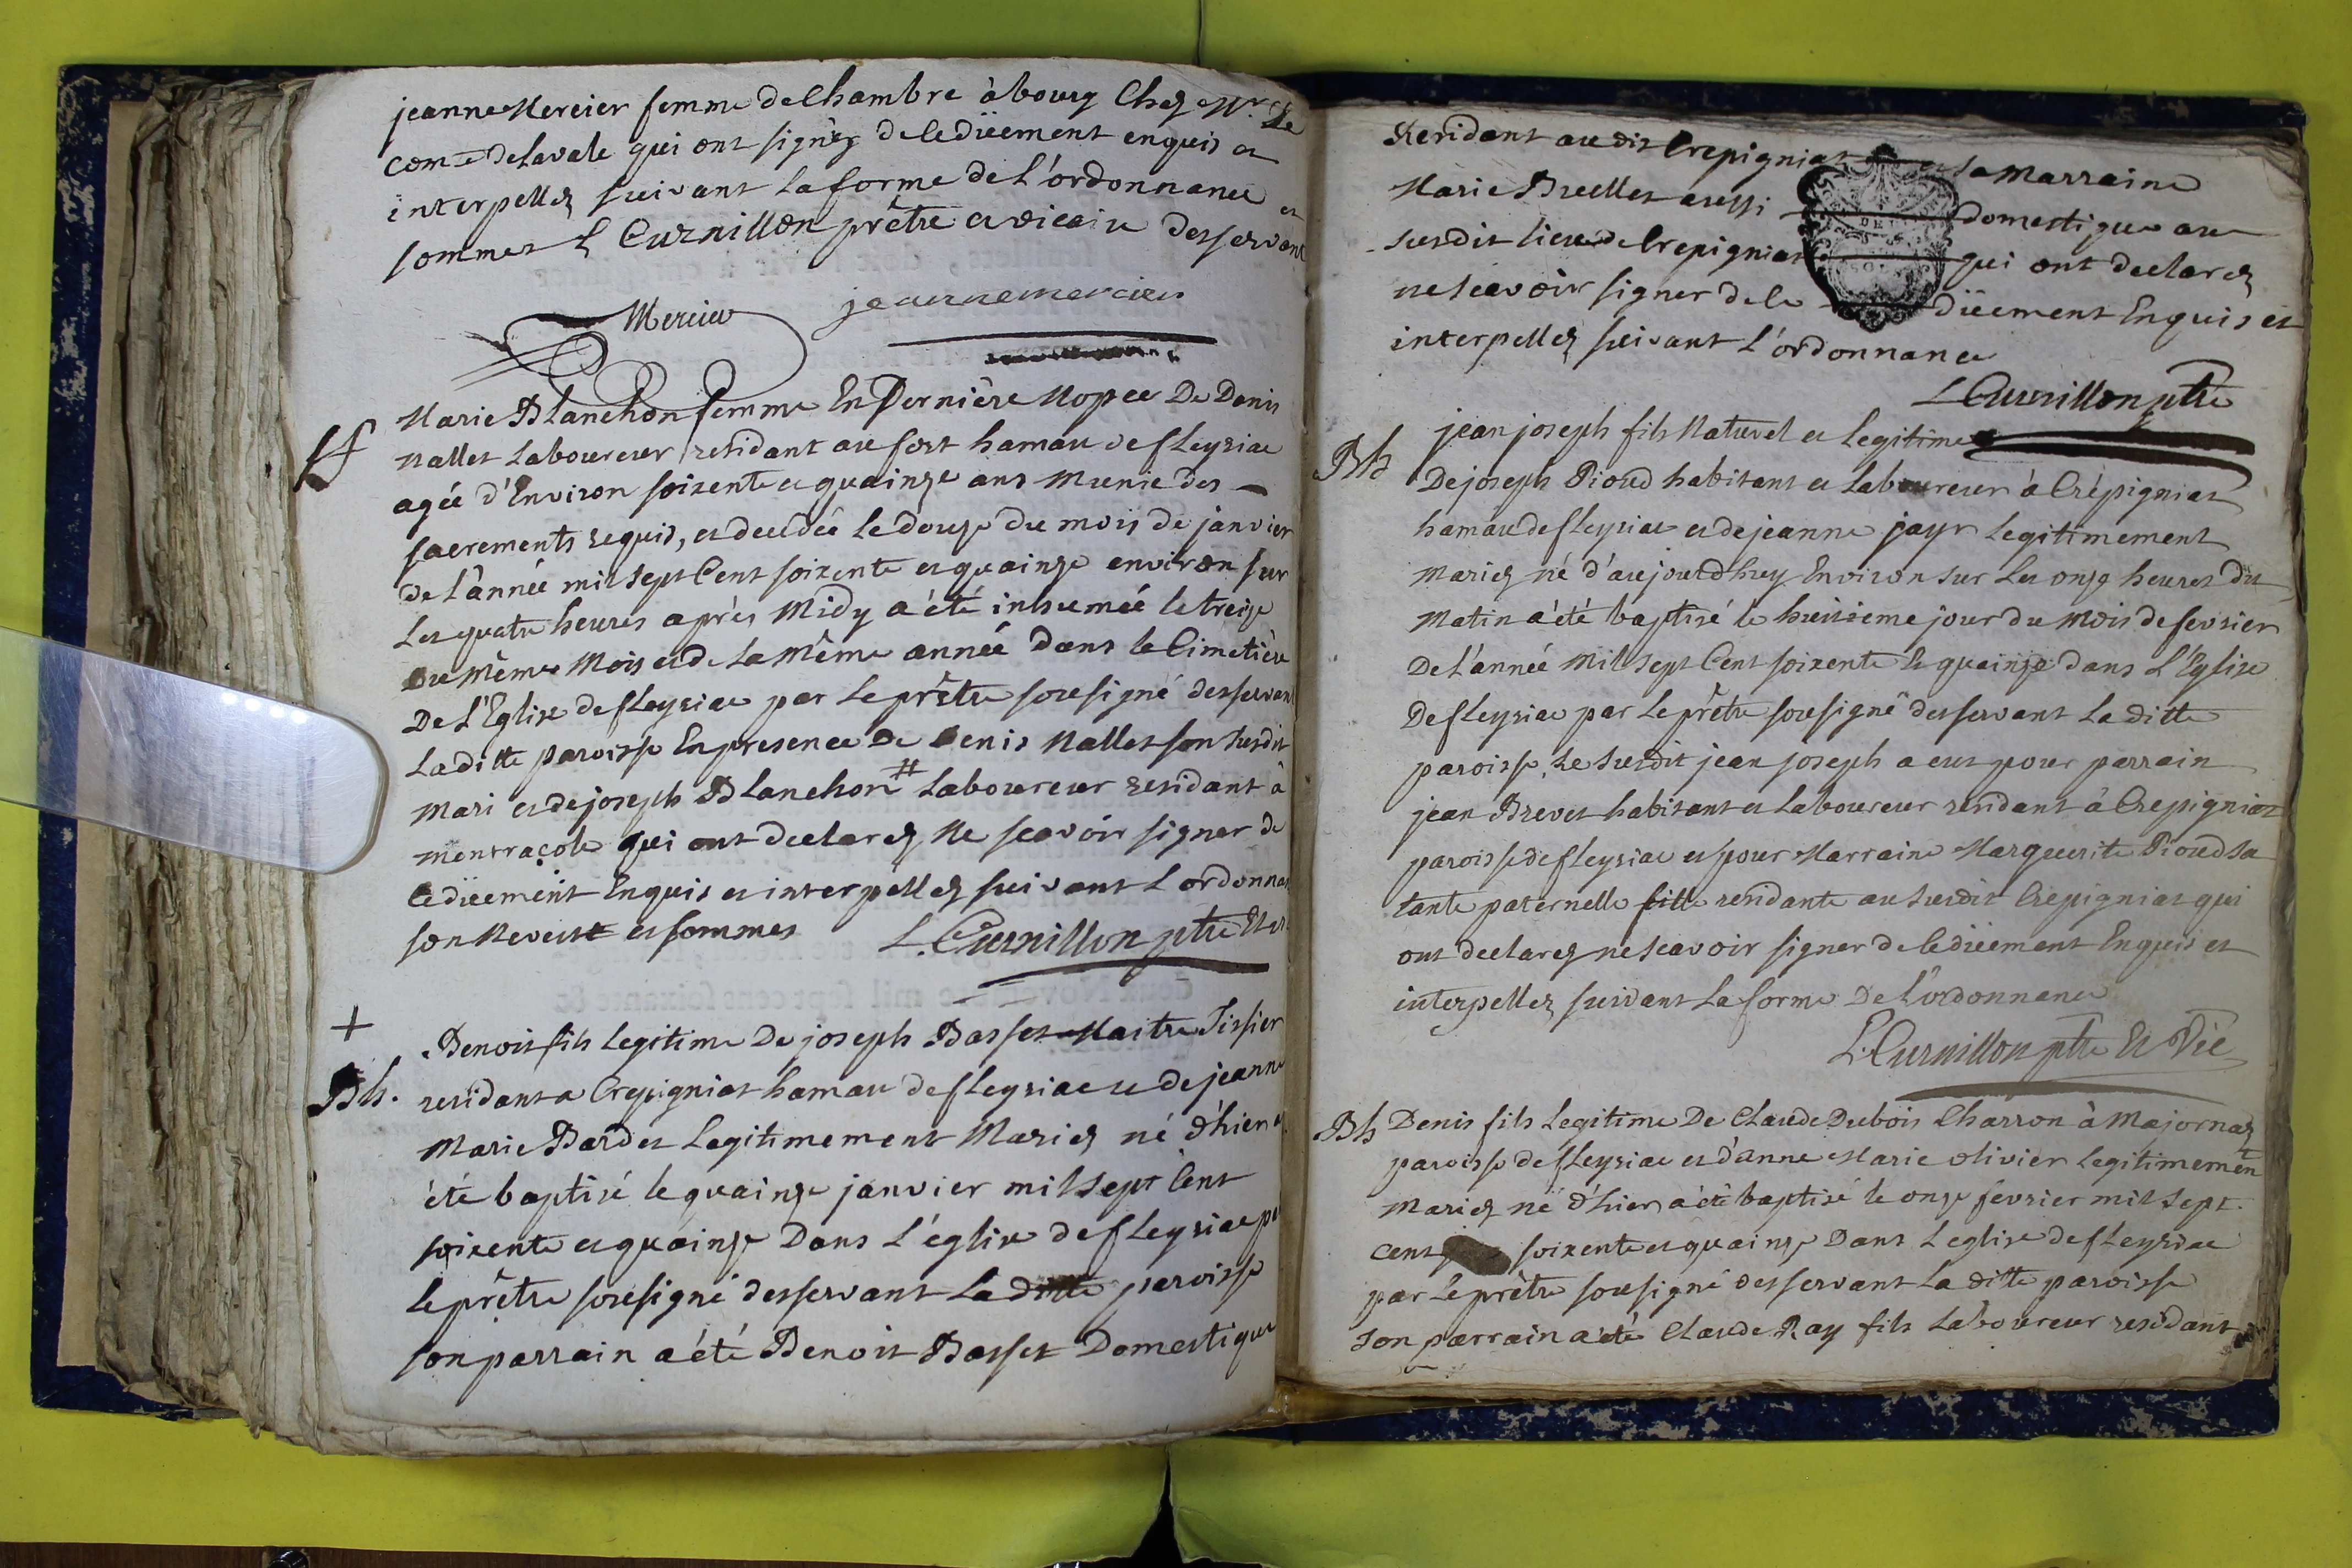 jeanne Mercier femme de Chambre à bourg Chez Mr. Le
Comte de Lavale qui ont signéz de ce düement enquis et
interpellez suivant la forme de L'ordonnance et
sommes L Curnillon prêtre et vicaire desservant
Mercier jeannemercier
Marie Blanchon femme En Dernière Nopce De Denis
Nallet Laboureur residant au fort hamau de fleyriac
agée d'Environ soixente et quainze ans munie des
sacrements requis, et decedée le douze du mois de janvier
de L'année mil sept Cent soixente et quainze environ sur
Les quatre heures après Midy a été inhumée le treize
du Même Mois et de La Même année Dans le Cimetière
De L'Eglise de fleyriac par Le prêtre sousigné desservant
La ditte paroisse En presence De Denis Nallet son susdit
Mari et de joseph Blanchon # Laboureur residant à
montracole qui ont declarez Ne scavoir signer de
ce düement Enquis et interpellez suivant L'ordonnan
son Neveu et sommes L. Curnillon ptre Et
+
Benoit fils Legitime De joseph Basset Maitre Tissier
Bh. residant a Crepigniat hamau de fleyriac et de jeanne
Marie Bardet Legitimement Mariez né d'hier a
été baptisé le quainze janvier mil sept Cent
soixente et quainze Dans L'église de fleyriac p
Le prêtre sousigné desservant La ditte paroisse
son parrain a été Benoit Basset Domestique
Residant au dit Crepigniat et sa Marraine
Marie Brellet aussi domestique au
susdit lieu de Crepigniat qui ont declarez
ne scavoir signer de ce düement Enquis et
interpellez suivant L'ordonnance
L Curnillon ptre
jean joseph fils Naturel et Legitime
Bh De joseph Pioud habitant et Laboureur à Crépigniat
hamau de fleyriac et de jeanne jayr Legitimement
Mariez né d'aujourdhuy Environ sur Les onze heures Du
Matin a été baptisé le huitieme jour du Mois de fevrier
De L'année Mil sept Cent soixente Et quainze dans L'Eglise
De fleyriac par Le prêtre sousigné desservant La ditte
paroisse, Le susdit jean joseph a eut pour parrain
jean Brevet habitant et Laboureur residant à Crepigniat
paroisse de fleyriac et pour Marraine Marguerite Pioud sa
tante paternelle fille residante au susdit Crepigniat qui
ont declarez ne scavoir signer de ce düement Enquis et
interpellez suivant La forme De L'ordonnance
L. Curnillon ptre Et Vic
Bh Denis fils Legitime De Claude Dubois Charron à Majornaz
paroisse de fleyriac et d'anne Marie olivier Legitimement
Mariez né d'hier a été baptisé le onze fevrier mil sept
cent soixente et quainze Dans L'eglise de fleyriac
par Le prêtre sousigné desservant La ditte paroisse
son parrain a été Claude Ray fils Laboureur residant